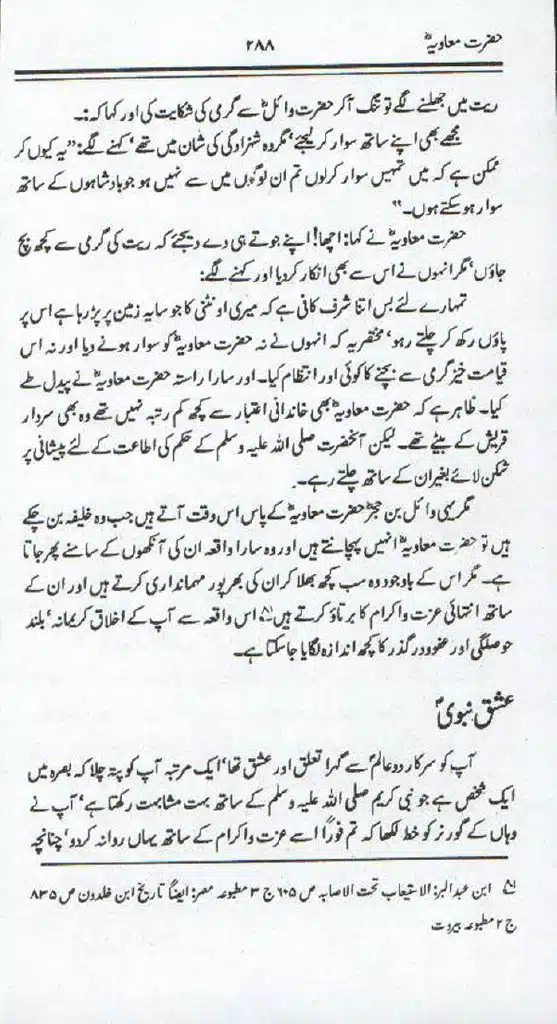 حضرت معاویہؓ ۲۸۸
ریت میں جھلسنے لگے تو تنگ آکر حضرت وائلؓ سے گرمی کی شکایت کی اور کہا کہ:۔
مجھے بھی اپنے ساتھ سوار کر لیجئے‘ مگر وہ شہزادگی کی شان میں تھے‘ کہنے لگے: ”یہ کیوں کر
ممکن ہے کہ میں تمہیں سوار کرلوں تم ان لوگوں میں سے نہیں ہو جو بادشاہوں کے ساتھ
سوار ہو سکتے ہوں۔“
حضرت معاویہؓ نے کہا: اچھا! اپنے جوتے ہی دے دیجئے کہ ریت کی گرمی سے کچھ بچ
جاؤں‘ مگر انہوں نے اس سے بھی انکار کردیا اور کہنے لگے:
تمہارے لئے بس اتنا شرف کافی ہے کہ میری اونٹنی کا جو سایہ زمین پر پڑ رہا ہے اس پر
پاؤں رکھ کر چلتے رہو‘ مختصر یہ کہ انہوں نے نہ حضرت معاویہؓ کو سوار ہونے دیا اور نہ اس
قیامت خیز گرمی سے بچنے کا کوئی اور انتظام کیا۔ اور سارا راستہ حضرت معاویہؓ نے پیدل طے
کیا۔ ظاہر ہے کہ حضرت معاویہؓ بھی خاندانی اعتبار سے کچھ کم رتبہ نہیں تھے وہ بھی سردار
قریش کے بیٹے تھے۔ لیکن آنحضرت صلی اللہ علیہ وسلم کے حکم کی اطاعت کے لئے پیشانی پر
شکن لائے بغیر ان کے ساتھ چلتے رہے۔
مگر یہی وائل بن حجرؓ حضرت معاویہؓ کے پاس اس وقت آتے ہیں جب وہ خلیفہ بن چکے
ہیں تو حضرت معاویہؓ انہیں پہچانتے ہیں اور وہ سارا واقعہ ان کی آنکھوں کے سامنے پھر جاتا
ہے۔ مگر اس کے باوجود وہ سب کچھ بھلا کر ان کی بھرپور مہمانداری کرتے ہیں اور ان کے
ساتھ انتہائی عزت و اکرام کا برتاؤ کرتے ہیں۔ اس واقعہ سے آپ کے اخلاق کریمانہ‘ بلند
حوصلگی اور عفو و درگذر کا کچھ اندازہ لگایا جاسکتا ہے۔
عشق نبویؐ
آپ کو سرکار دو عالمؐ سے گہرا تعلق اور عشق تھا‘ ایک مرتبہ آپ کو پتہ چلا کہ بصرہ میں
ایک شخص ہے جو نبی کریم صلی اللہ علیہ وسلم کے ساتھ بہت مشابہت رکھتا ہے‘ آپ نے
وہاں کے گورنر کو خط لکھا کہ تم فوراً اسے عزت و اکرام کے ساتھ یہاں روانہ کردو‘ چنانچہ
ابن عبدالبر: الاستیعاب تحت الاصابہ ص ۶۰۵ ج ۳ مطبوعہ مصر: ایضاً تاریخ ابن خلدون ص ۸۳۵
ج ۲ مطبوعہ بیروت